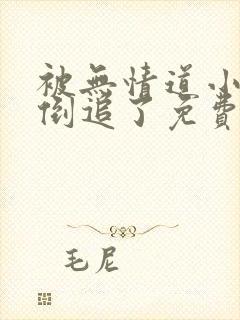 被無情道小
倒追了免費
毛尼